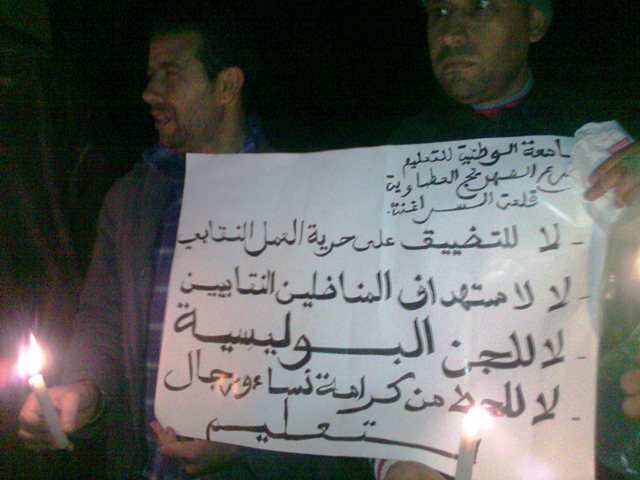 الوطنية للتعليم
الصهريج العطاوية
قلعة السراغنة
- لا للتضييق على حرية العمل النقابي
- لا لاستهداف المناضلين النقابيين
- لا للجن البوليسية
- لا للحط من كرامة نساء ورجال
التعليم